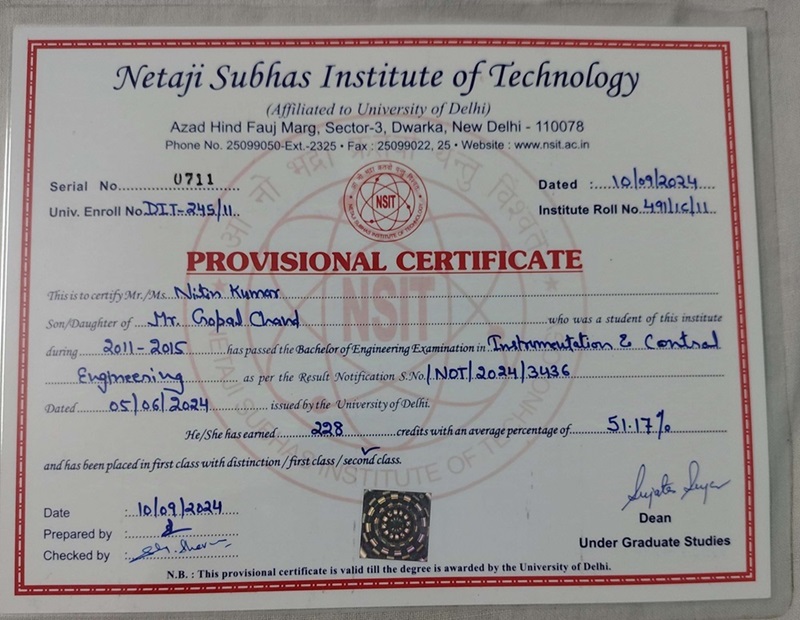 Netaji Subhas Institute of Technology
(Affiliated to University of Delhi)
Azad Hind Fauj Marg, Sector-3, Dwarka, New Delhi - 110078
Phone No. 25099050-Ext.-2325 • Fax : 25099022, 25 • Website : www.nsit.ac.in
Serial No. 0711 Dated : 10/09/2024
Univ. Enroll No. DIT-245/11 Institute Roll No. 491/IC/11
NSIT
PROVISIONAL CERTIFICATE
This is to certify Mr./Ms. Nitin Kumar
Son/Daughter of Mr. Gopal Chand who was a student of this institute
during 2011-2015 has passed the Bachelor of Engineering Examination in Instrumentation & Control
Engineering as per the Result Notification S.No. /NOT/2024/3436
Dated 05/06/2024 issued by the University of Delhi.
He/She has earned 228 credits with an average percentage of 51.17%
and has been placed in first class with distinction / first class / second class.
Date : 10/09/2024
Prepared by :
Checked by :
Dean
Under Graduate Studies
N.B. : This provisional certificate is valid till the degree is awarded by the University of Delhi.